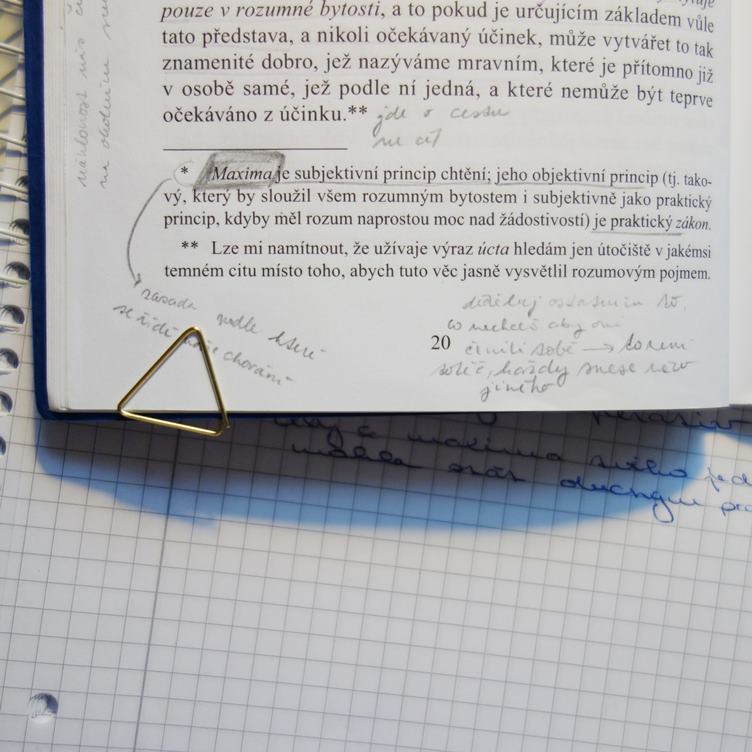 pouze v rozumné bytosti, a to pokud je určujícím základem vůle
tato představa, a nikoli očekávaný účinek, může vytvářet to tak
znamenité dobro, jež nazýváme mravním, které je přítomno již
v osobě samé, jež podle ní jedná, a které nemůže být teprve
očekáváno z účinku.** jde o cestu
ne cíl
* Maxima je subjektivní princip chtění; jeho objektivní princip (tj. tako-
vý, který by sloužil všem rozumným bytostem i subjektivně jako praktický
princip, kdyby měl rozum naprostou moc nad žádostivostí) je praktický zákon.
** Lze mi namítnout, že užívaje výraz úcta hledám jen útočiště v jakémsi
temném citu místo toho, abych tuto věc jasně vysvětlil rozumovým pojmem.
zásada podle které
se řídí naše chování
20
co nechceš aby oni
činili tobě →
každy
jiného
a maxima svého jed
měla stát